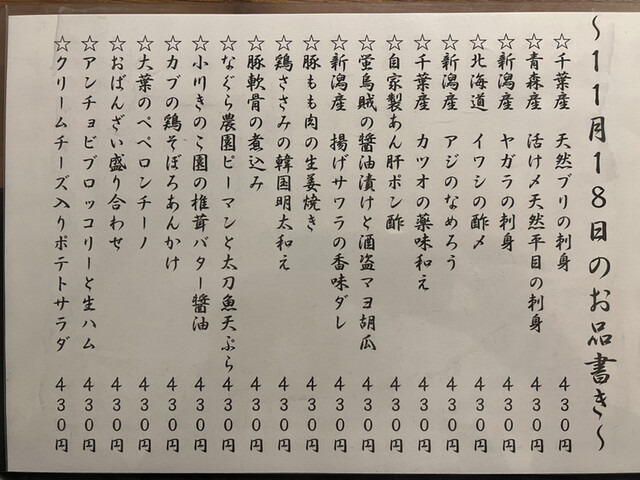 ～11月18日のお品書き～
☆千葉産 天然ブリの刺身 430円
☆青森産 活け〆天然平目の刺身 430円
☆新潟産 ヤガラの刺身 430円
☆北海道 イワシの酢〆 430円
☆新潟産 アジのなめろう 430円
☆千葉産 カツオの薬味和え 430円
☆自家製あん肝ポン酢 430円
☆蛍烏賊の醤油漬けと酒盗マヨ胡瓜 430円
☆新潟産 揚げサワラの香味ダレ 430円
☆豚もも肉の生姜焼き 430円
☆鶏ささみの韓国明太和え 430円
☆豚軟骨の煮込み 430円
☆なぐら農園ピーマンと太刀魚天ぷら 430円
☆小川きのこ園の椎茸バター醤油 430円
☆カブの鶏そぼろあんかけ 430円
☆大葉のペペロンチーノ 430円
☆おばんざい盛り合わせ 430円
☆アンチョビブロッコリーと生ハム 430円
☆クリームチーズ入りポテトサラダ 430円